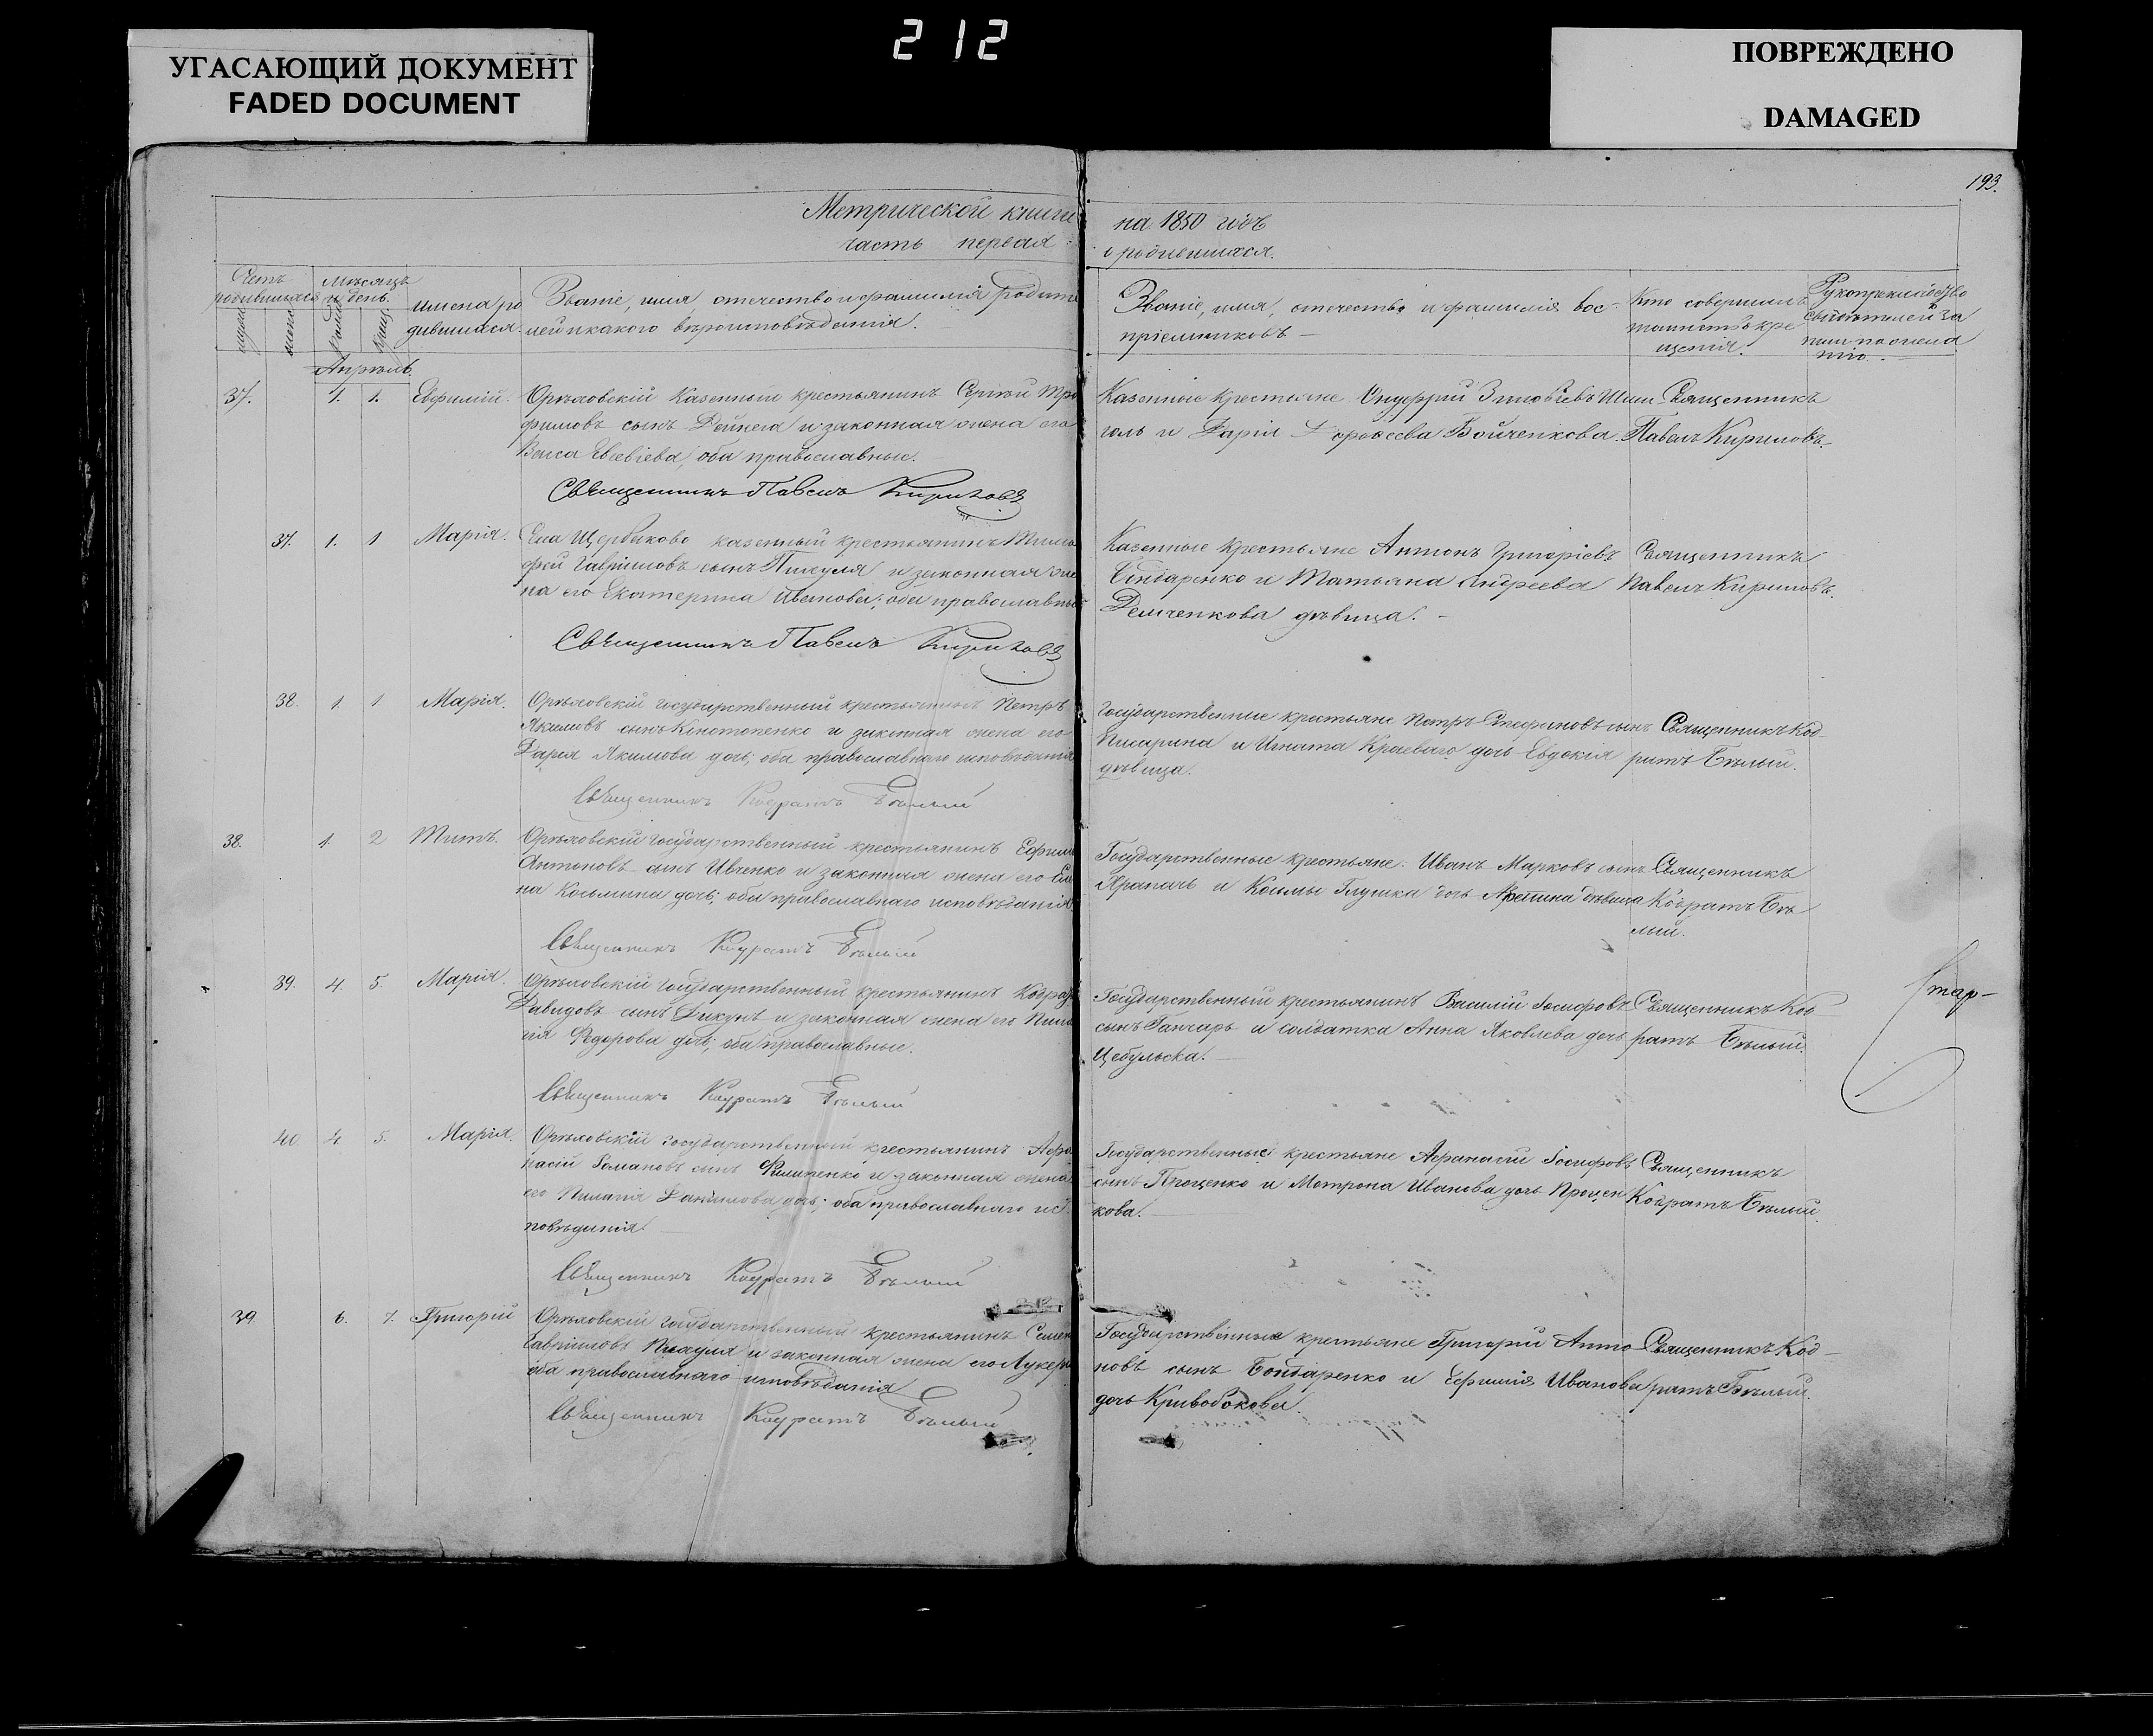 212
УГАСАЮЩИЙ ДОКУМЕНТ
FADED DOCUMENT
ПОВРЕЖДЕНО
DAMAGED
193.
Метрической книги
часть первая
на 1850 годъ
о родившихся.
Счетъ
родившихся
мѣсяцъ
и день.
имена ро
дившихся.
Званіе, имя отечество и фамилія родите
лей и какого вѣроисповѣданія.
Званіе, имя, отечество и фамилія вос-
пріемниковъ
Кто совершалъ
таинство кре
щенія.
Апрѣль.
37. 1. 1. Евфимій.
Орѣховскій казенный крестьянинъ Сергѣй Тро
фимовъ сынъ Дейнега и законная жена его
Васса Евсевіева, оба православные.
Священникъ Павелъ Кириловъ
Казенные крестьяне Онуфрій Зиновіевъ Шаш
голь и Дарія Дорофеева Бойченкова.
Священникъ
Павелъ Кириловъ.
37. 1. 1 Марія.
Села Щербаково казенный крестьянинъ Тимо
фей Гавріиловъ сынъ Пихуля и законная же
на его Екатерина Иванова; оба православные
Священникъ Павелъ Кириловъ
Казенные крестьяне Антонъ Григоріевъ
Бондаренко и Татьяна Андреева
Демченкова дѣвица.
Священникъ
Павелъ Кириловъ.
38. 1. 1 Марія.
Орѣховскій государственный крестьянинъ Петръ
Акимовъ сынъ Конотопенко и законная жена его
Дарія Акимова дочь; оба православнаго исповѣданія
Священникъ Кодратъ Бѣлый
Государственные крестьяне Петръ Стефановъ сынъ
Писарина и Игната Краеваго дочь Евдокія
дѣвица.
Священникъ Код
ратъ Бѣлый.
38. 1 2 Титъ.
Орѣховскій государственный крестьянинъ Ефимъ
Антоновъ сынъ Ивченко и законная жена его Еле
на Косьмина дочь; оба православнаго исповѣданія
Священникъ Кодратъ Бѣлый
Государственные крестьяне: Иванъ Марковъ сынъ
Харапачь и Косьмы Глушка дочь дѣвица
Священникъ
Кодратъ Бѣ
лый.
39. 4. 5. Марія.
Орѣховскій государственный крестьянинъ Кодратъ
Давидовъ сынъ Дикунъ и законная жена его Пила
гія Федорова дочь; оба православные.
Священникъ Кодратъ Бѣлый
Государственный крестьянинъ Василій Іосифовъ
сынъ Ганчарь и солдатка Анна Яковлева дочь
Цебульска.
Священникъ Код
ратъ Бѣлый.
стар-
40. 4. 5. Марія.
Орѣховскій государственный крестьянинъ Афа
насій Романовъ сынъ Филипенко и законная жена
его Пилагія Данилова дочь; оба православнаго ис
повѣданія.
Священникъ Кодратъ Бѣлый
Государственные крестьяне Афанасій Іосифовъ
сынъ Проценко и Мотрона Иванова дочь Процен
кова.
Священникъ
Кодратъ Бѣлый.
39 6. 7. Григорій
Орѣховскій государственный крестьянинъ Семенъ
Гавріиловъ Пихуля и законная жена его Лукерія
оба православнаго исповѣданія
Священникъ Кодратъ Бѣлый
Государственные крестьяне Григорій Анто
новъ сынъ Бондаренко и Ефимія Иванова
дочь Кривобокова.
Священникъ Код
ратъ Бѣлый.